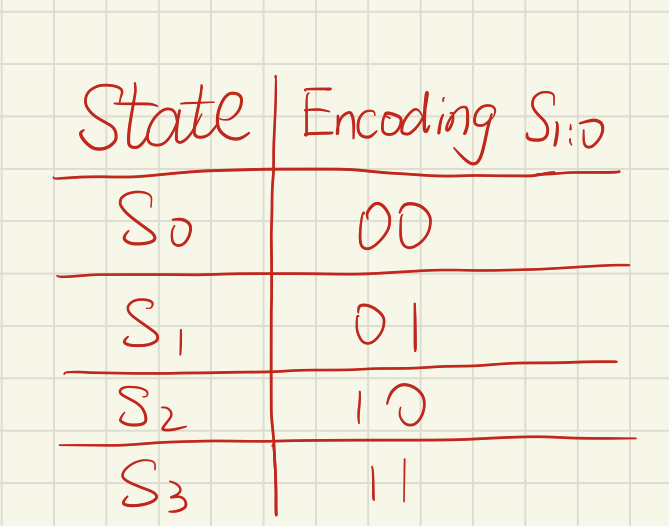 State Encoding S1:0
S0 00
S1 01
S2 10
S3 11